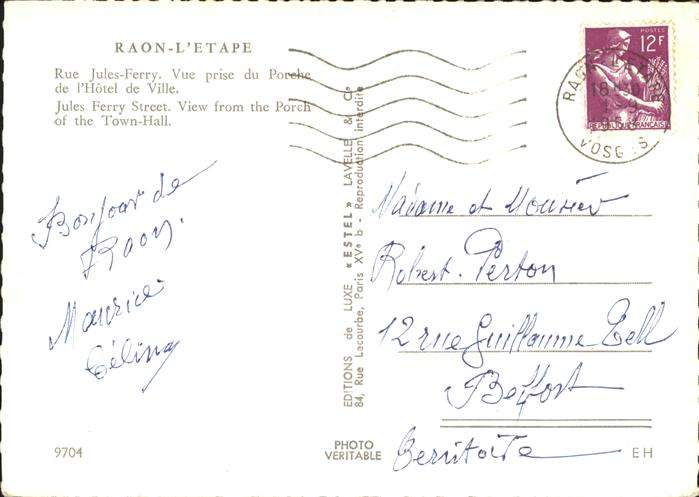 RAON-L'ETAPE
Rue Jules-Ferry. Vue prise du Porche
de l'Hôtel de Ville.
Jules Ferry Street. View from the Porch
of the Town-Hall.
Bonjour de
Raon.
Maurice
Céling
9704
EDITIONS de LUXE «ESTEL» LAVELLE & Cie
84, Rue Lacourbe, Paris XVe b - Reproduction interdite
PHOTO
VERITABLE
POSTES
12F
REPUBLIQUE FRANÇAISE
VOSGES
Madame et Monsieur
Robert. Perton
12 rue Guillaume Tell
Belfort
Territoire
EH